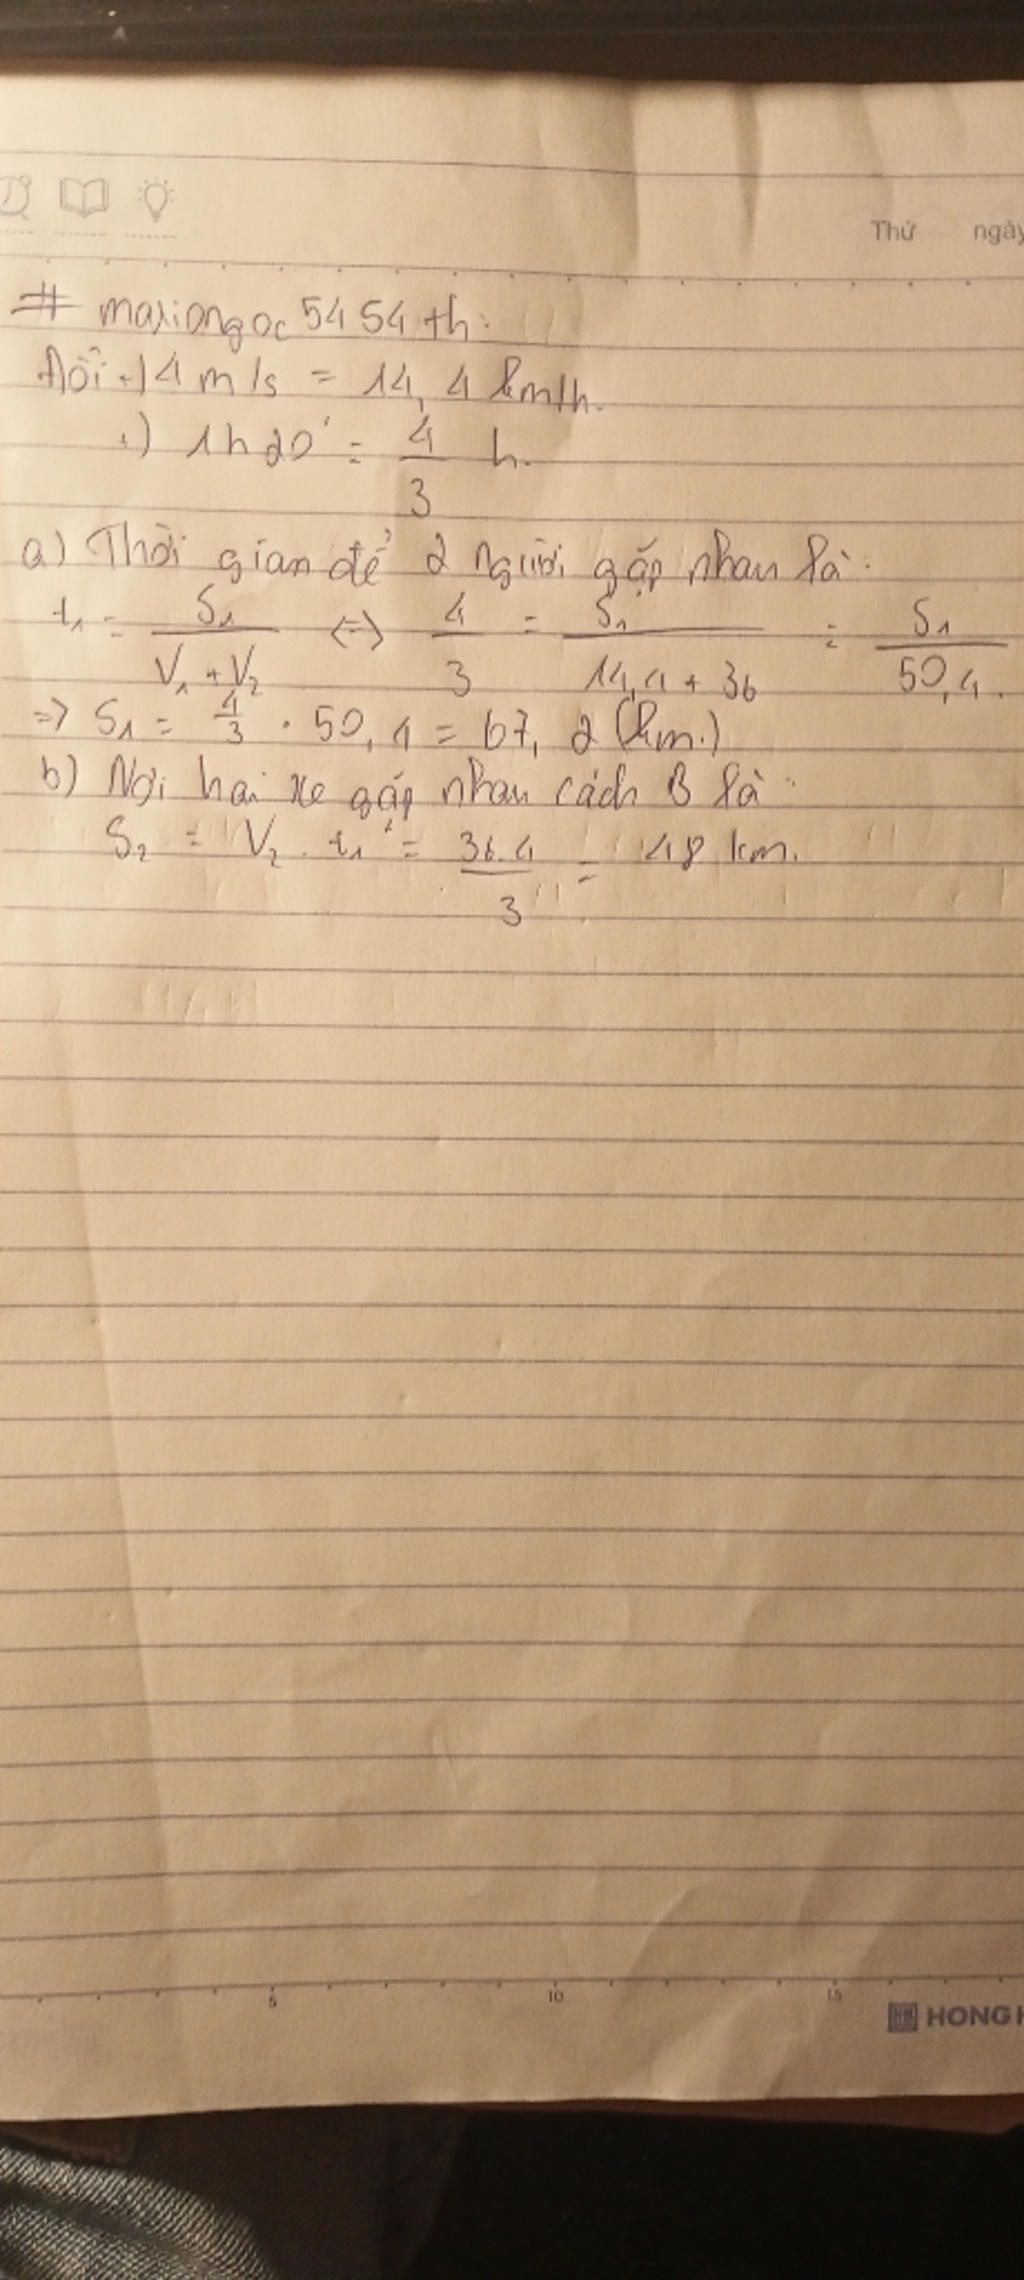 Thứ ngày
# maxiongoc 5454 th:
Đổi .) 4 m/s = 14,4 km/h.
.) 1h20' = 4/3 h.
a) Thời gian để 2 người gặp nhau là:
t₁ = S₁/(V₁ + V₂) <=> 4/3 = S₁/(14,4 + 36) = S₁/50,4.
=> S₁ = 4/3 . 50,4 = 67,2 (km.)
b) Nơi hai xe gặp nhau cách B là:
S₂ = V₂ . t₁ = 36.4/3 = 48 km.
5 10 15
HONG H